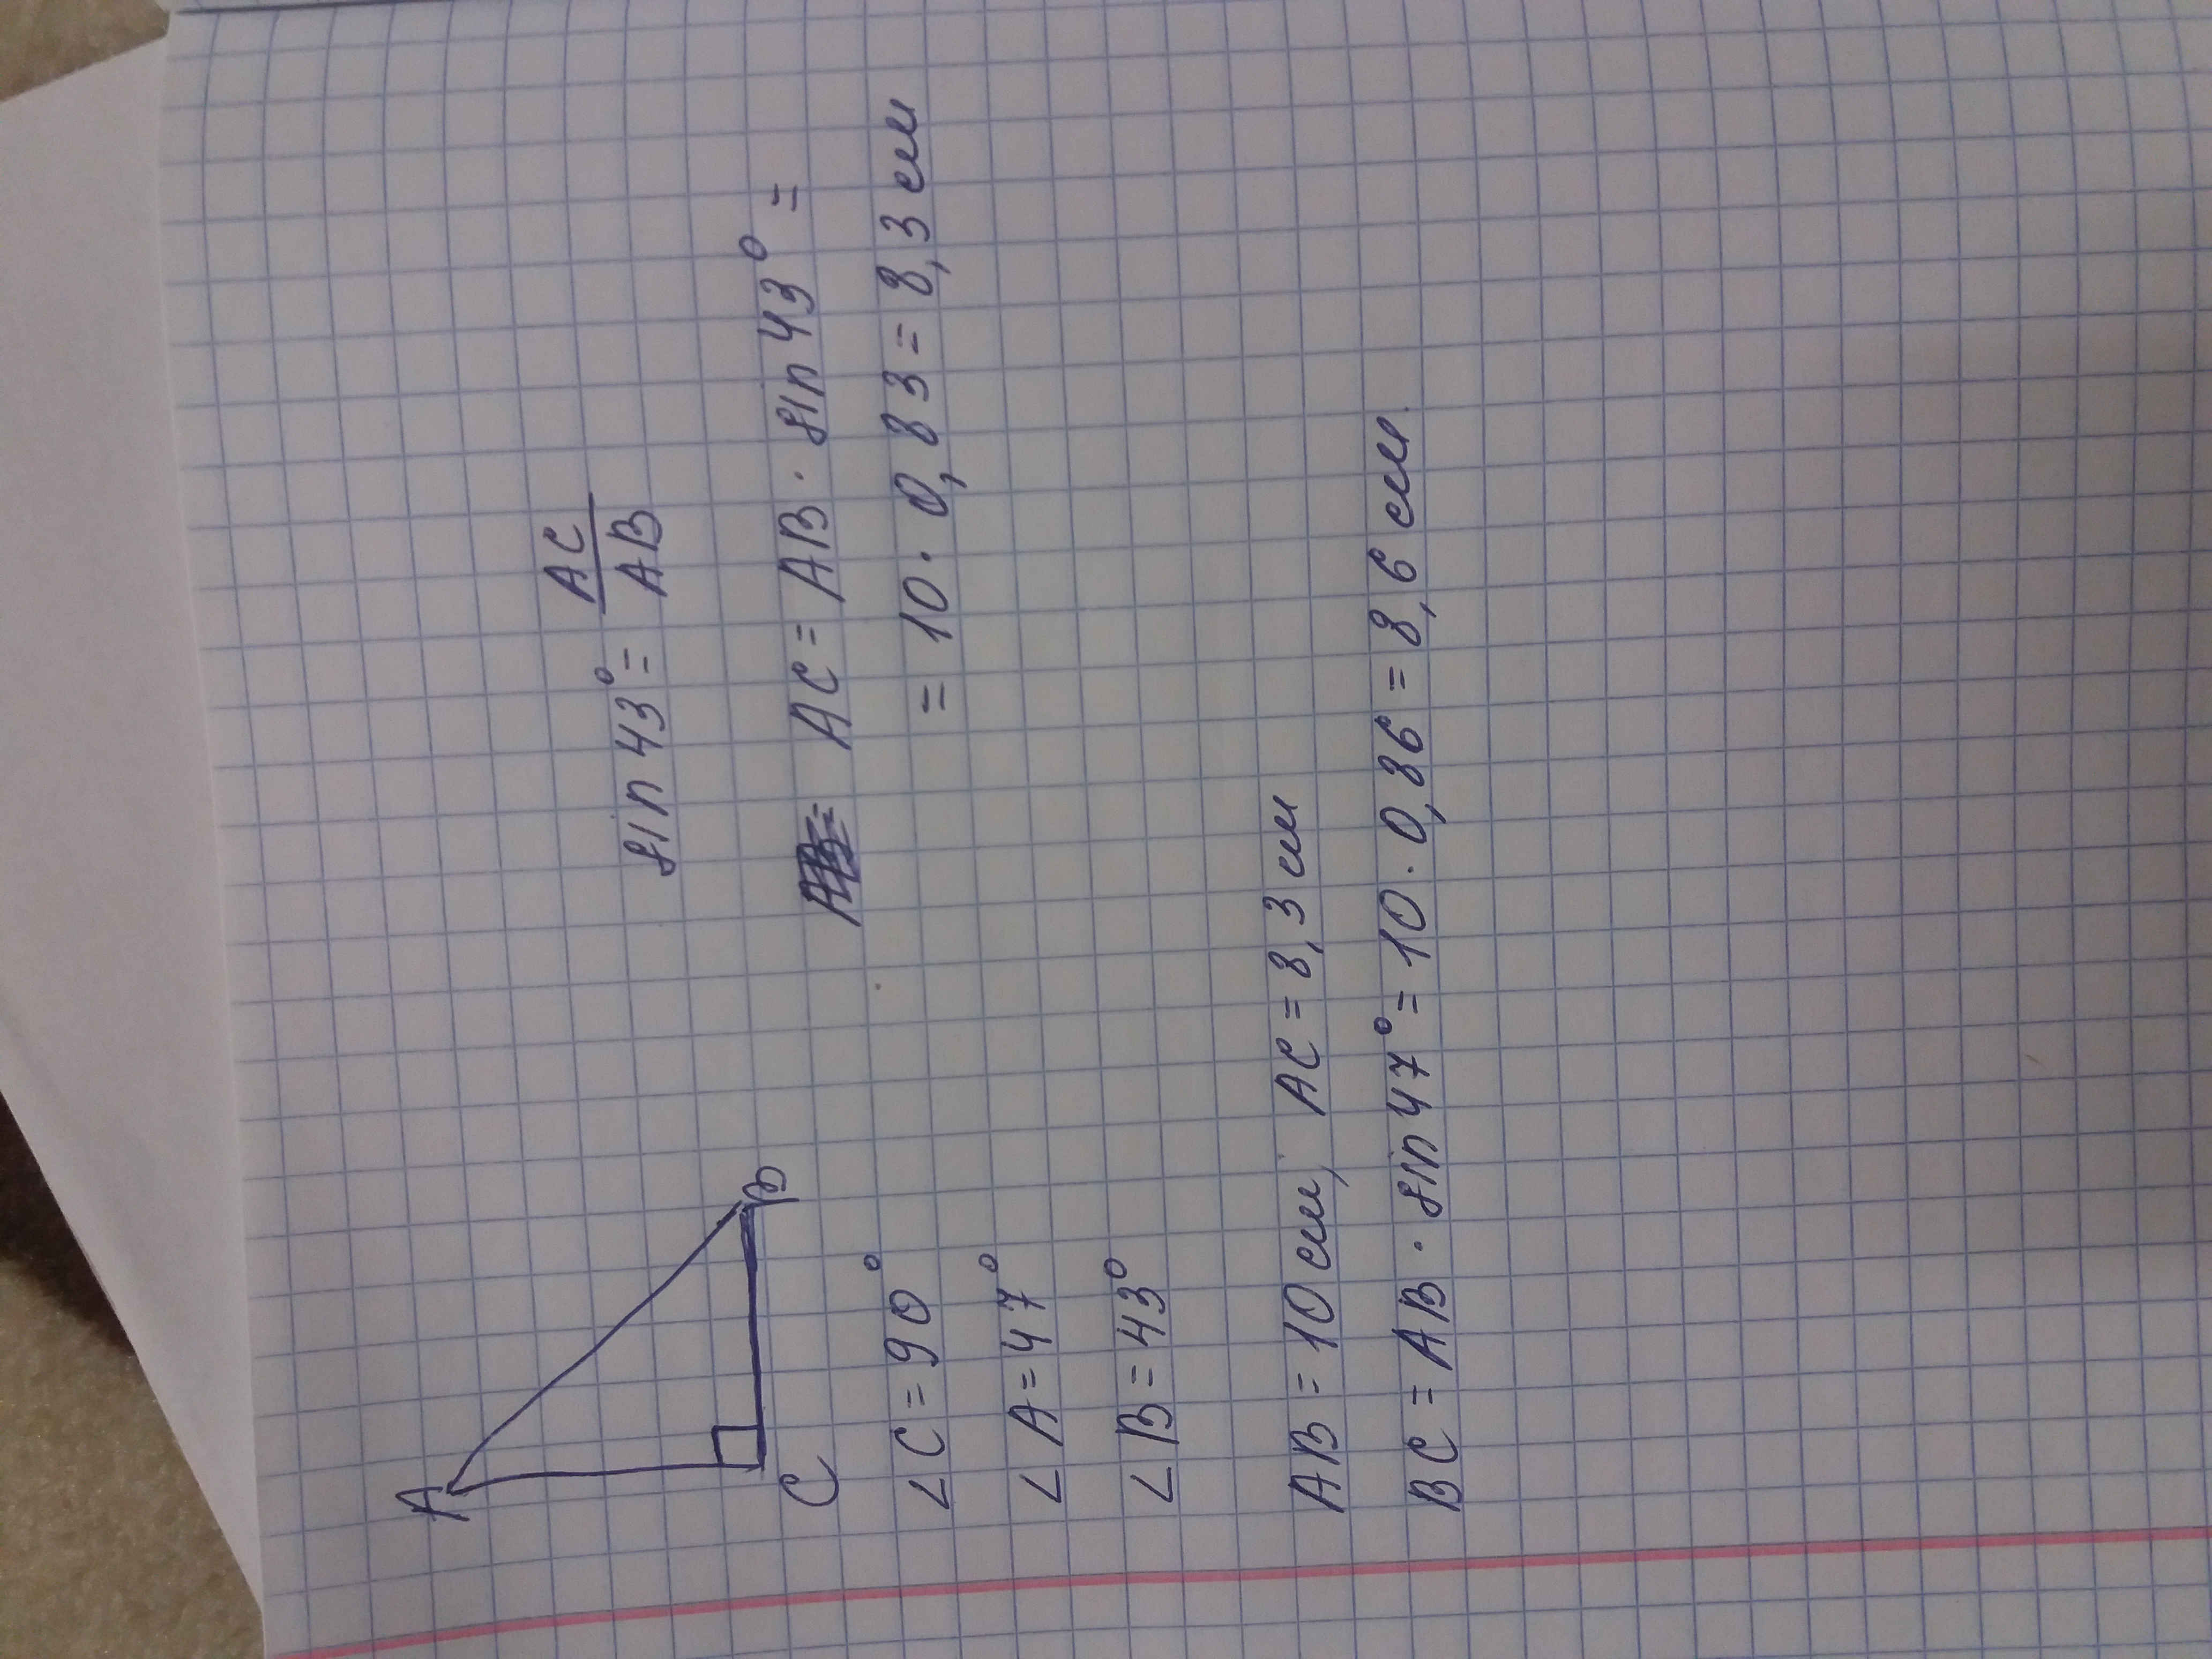 A
B
C
∠C = 90°
∠A = 47°
∠B = 43°
sin 43° = AC/AB
AC = AB · sin 43° =
= 10 · 0,83 = 8,3 см
AB = 10 см, AC = 8,3 см
BC = AB · sin 47° = 10 · 0,86 = 8,6 см.